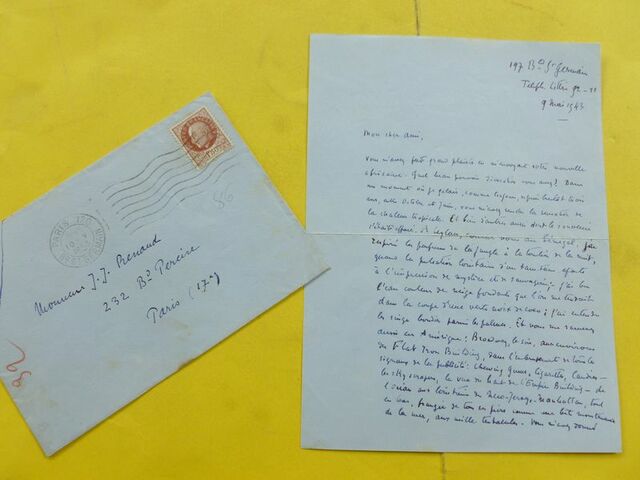 197 Bd St Germain
Teleph. Littré 92-21
9 Mai 1943
Mon cher ami,
Vous m'avez fait grand plaisir en m'envoyant votre nouvelle
africaine. Quel beau pouvoir d'évocation vous avez! Dans
un moment où je gelais, comme toujours,
ans, entre Octobre et Juin, vous m'avez rendu la sensation de
la chaleur tropicale. Et bien d'autres dont le souvenir
s'était effacé. À comme vous au Sénégal, j'ai
respiré le parfum de la jungle à la tombée de la nuit,
quand la pulsation lointaine d'un tamtam ajoute
à l'impression de mystère et de sauvagerie, j'ai bu
l'eau couleur de neige fondante que l'on me
dans la coupe d'une verte noix de coco; j'ai entendu
les singes bondir parmi les palmes. Et vous me ramenez
aussi en Amérique: Broadway, le soir, aux environs
du Flat Iron Building, dans de toute la
de la publicité: Chewing Gums, Cigarettes, Candies -
les Sky scrapers, la vue du haut de l'Empire Building - de
l'océan aux lointains de New-Jersey, Manhattan, tout
en bas, de tous ses piers comme une bête monstrueuse
de la mer, aux mille tentacules. Vous m'avez donné
PARIS
Monsieur J. J. Renaud
232 Bd Pereire
Paris (17e)
86